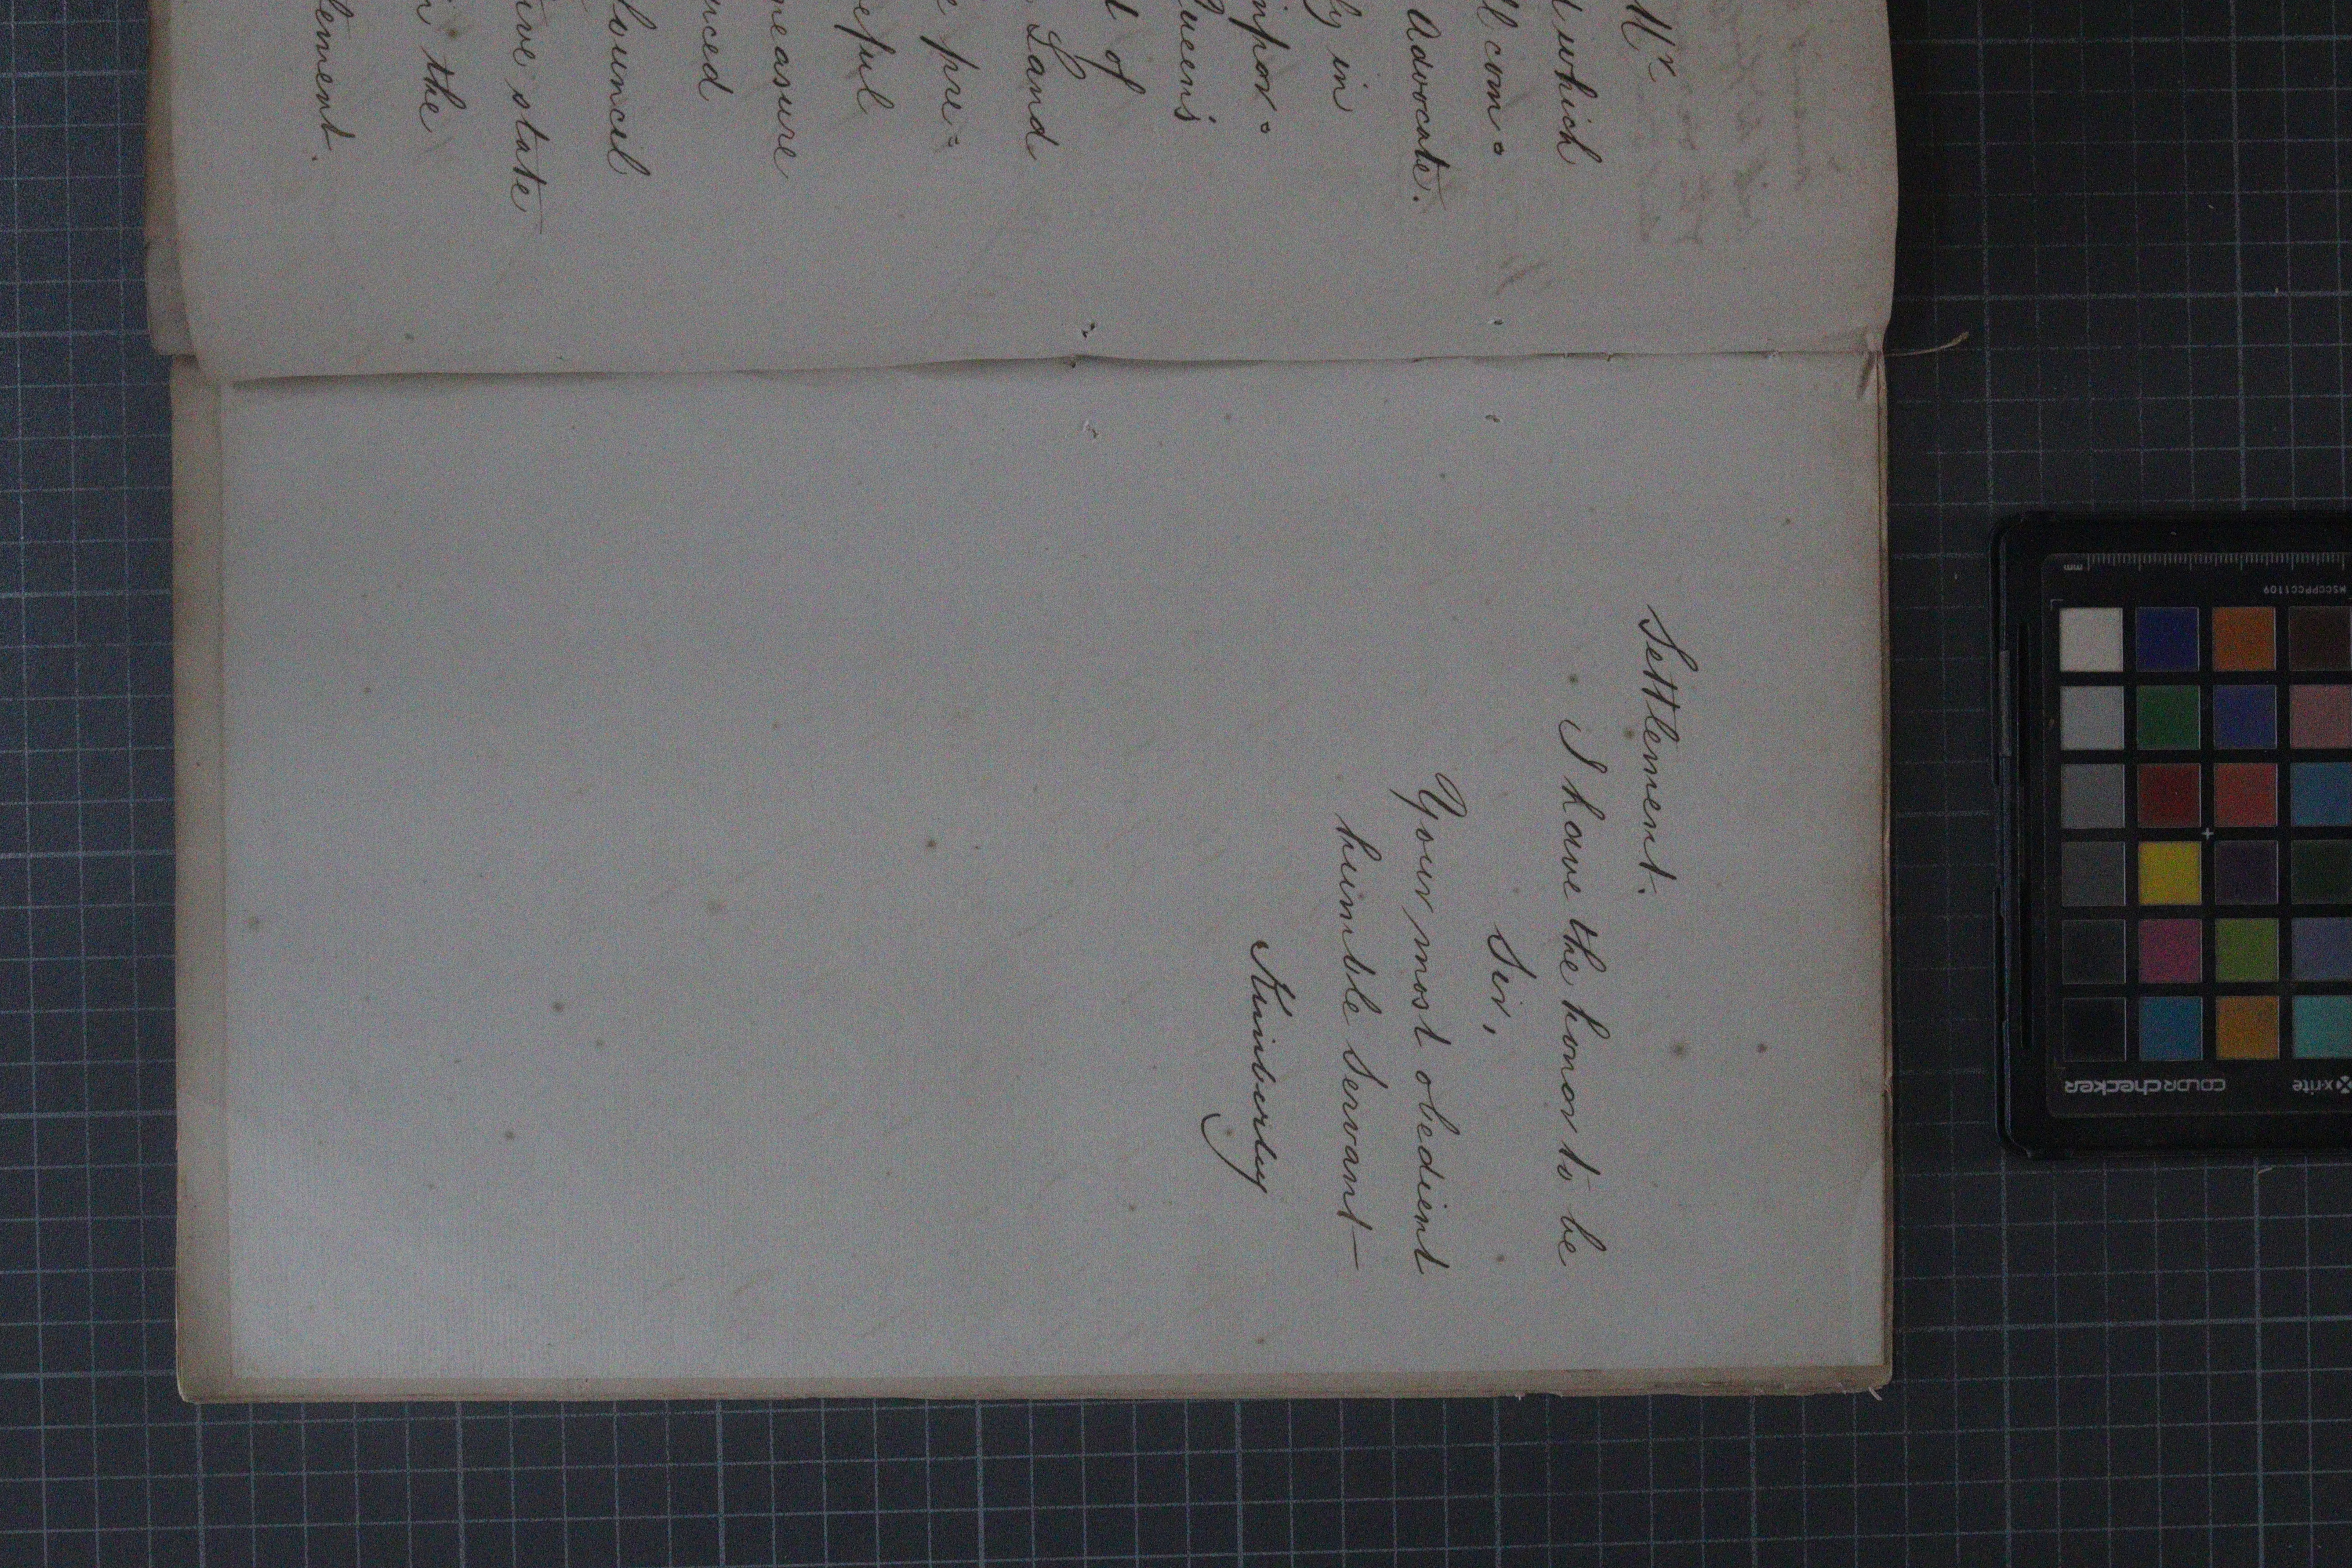 Mr
which
com=
Advocate.
in
impor=
Queen's
of
Land
pre=
measure
Council
state
the
Settlement.
I have the honor to be
Sir,
Your most obedient
humble Servant
Kimberley
mm
MSCCPPCC1109
colorchecker x-rite